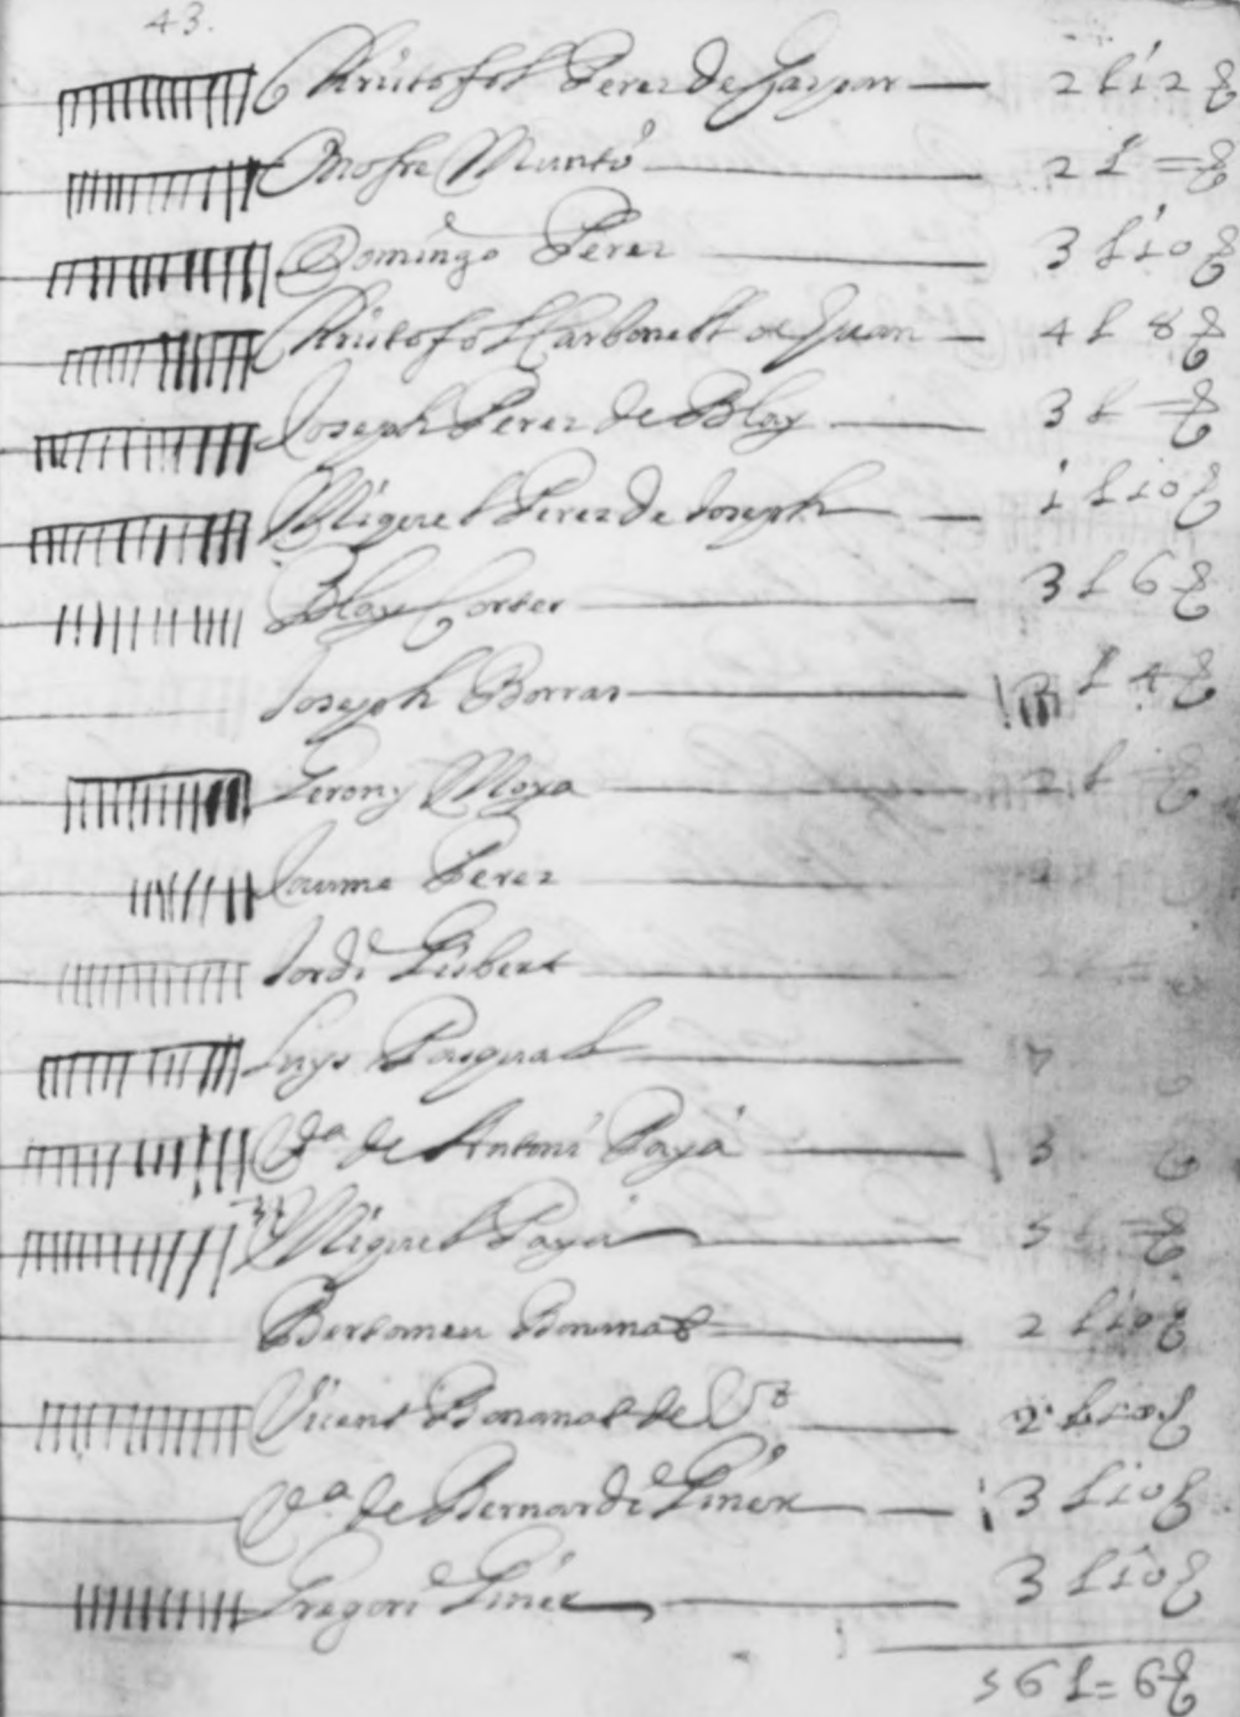 43.
Christofol Perez de Gaspar — 2 L 12 S
Onofre Muntó — 2 L = S
Domingo Perez — 3 L 10 S
Christofol Carbonell de Juan — 4 L 8 S
Joseph Perez de Blay — 3 L = S
Miguel Perez de Joseph — 1 L 10 S
Blay Corter — 3 L 6 S
Joseph Borras — L 4 S
Gerony Moya — 2 L = S
Jaume Perez —
Jordi Gisbert — 2
Luys Pasqual —
Vª de Antoni Payá — 3
Miguel Payá — 5 L = S
Bertomeu Bonmat — 2 L 10 S
Vicent Bonanat de Vt — 2 L 10 S
Vª de Bernardi Giner — 3 L 10 S
Gregori Giner — 3 L 10 S
56 L = 6 S